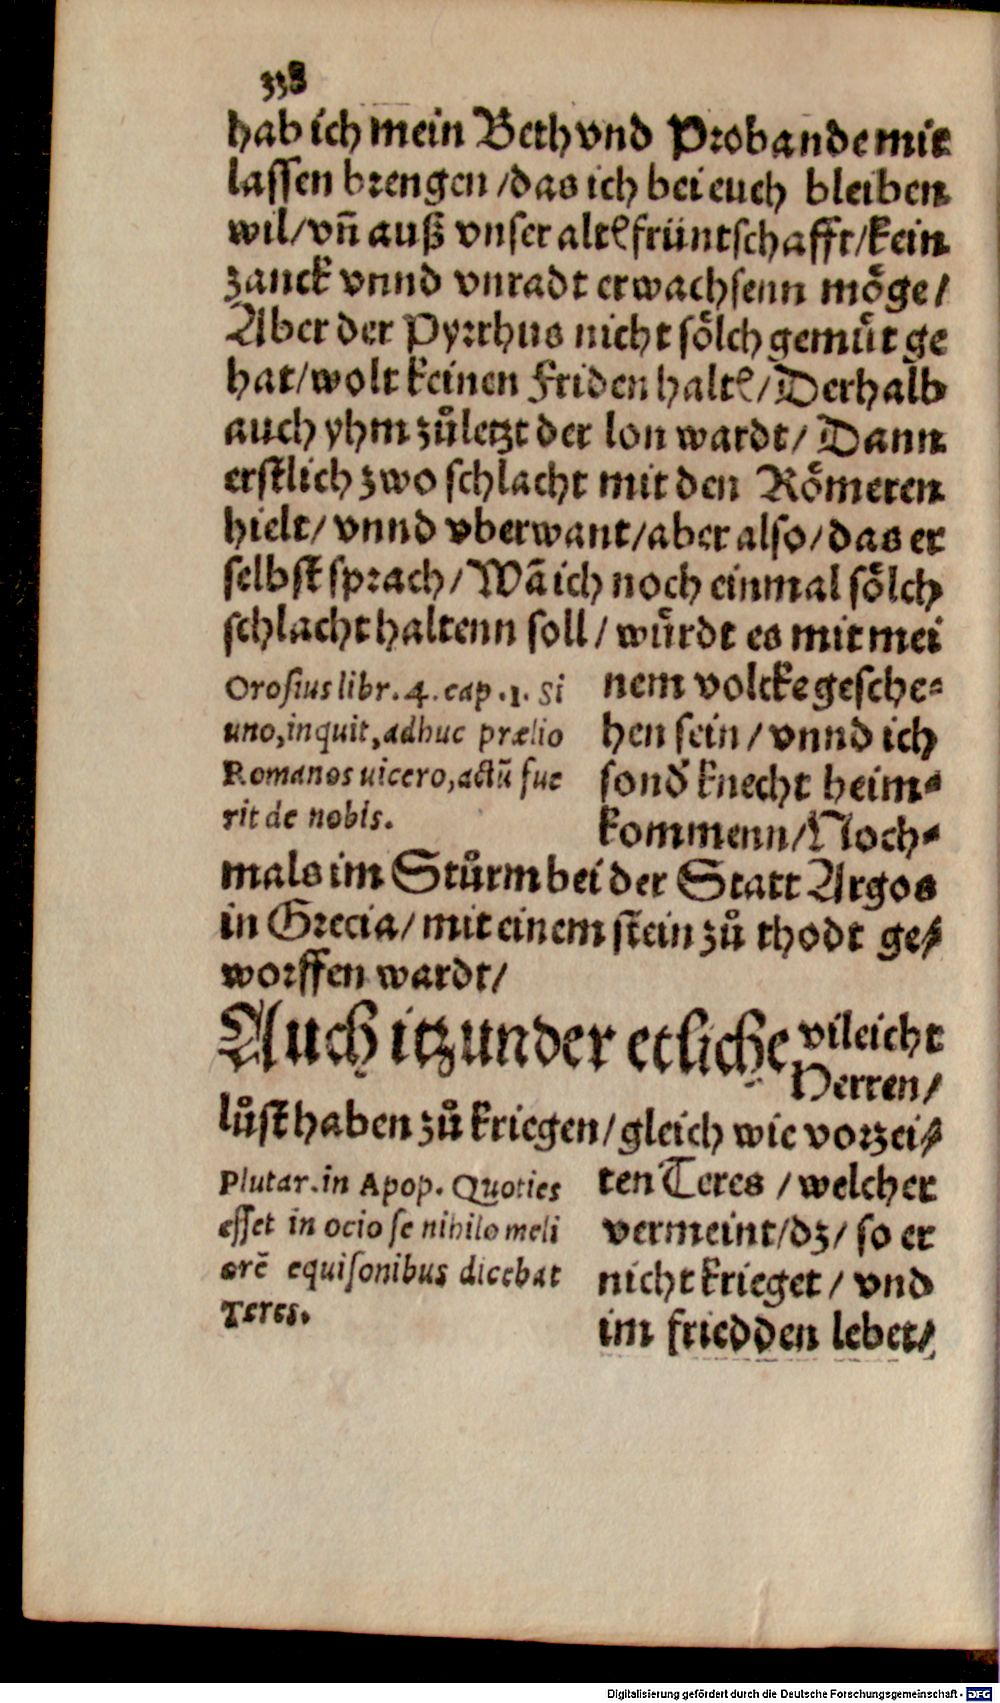 338
hab ich mein Beth vnd Probande mit
lassen brengen /das ich bei euch bleiben
wil/vn̄ auß vnser altẽ früntschafft/kein
zanck vnnd vnradt erwachsenn moͤge/
Aber der Pyrrhus nicht soͤlch gemuͤt ge
hat/wolt keinen Friden haltẽ/Derhalb
auch yhm zuͦletzt der lon wardt/ Dann
erstlich zwo schlacht mit den Roͤmeren
hielt/ vnnd vberwant/aber also/das er
selbst sprach/Wã ich noch einmal soͤlch
schlacht haltenn soll/ wuͤrdt es mit mei
nem volcke gesche-
hen sein/vnnd ich
sond' knecht heim-
kommenn/Noch-
Orosius libr. 4. cap. 1. Si
uno, inquit, adhuc prælio
Romanos uicero, actū fue
rit de nobis.
mals im Stuͤrm bei der Statt Argos
in Grecia/ mit einem stein zuͦ thodt ge-
worffen wardt/
Auch itzunder etliche vileicht
Herren/
luͦst haben zuͦ kriegen/gleich wie vorzei-
ten Teres /welcher
vermeint/dz/ so er
nicht krieget/ vnd
im friedden lebet/
Plutar. in Apop. Quoties
esset in ocio se nihilo meli
orē equisonibus dicebat
Teres.
Digitalisierung gefördert durch die Deutsche Forschungsgemeinschaft - DFG